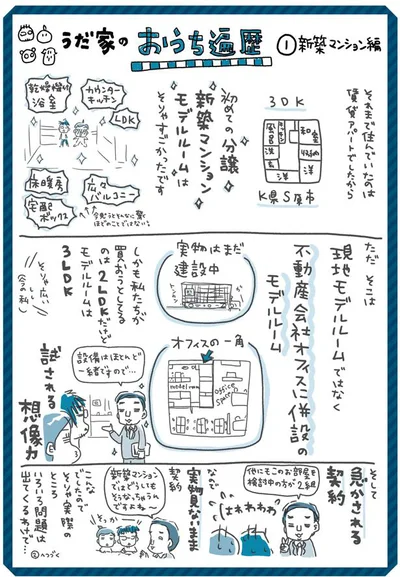 うだ家の おうち遍歴 ①新築マンション編
それまで住んでいたのは
賃貸アパートでしたから
3DK
和室
収納
洋
洋
玄
K県S尾市
初めての分譲
新築マンション
モデルルームは
そりゃすごかったです
乾燥機付
浴室
カウンター
キッチン
LDK
床暖房
広々
バルコニー
宅配
ボックス
ただ そこは
現地モデルルームではなく
不動産会社オフィスに併設の
モデルルーム
実物はまだ
建設中
オフィスの一角
model room
office
space
しかも私たちが
買おうとしてる
のは2LDKだけど
モデルルームは
3LDK
そりゃ広い
(今の私)
設備はほとんど
一緒ですので…
試される
想像力
そして
急かされる
契約
他にもこのお部屋を
検討中の方が2組
なんて
実物見ないまま
契約
新築マンション
ではどうしても
そうなっちゃうん
ですよね〜
こんな
でしたので
そりゃ実際の
ところ
いろいろ問題は
出てくるわけで…
②へつづく